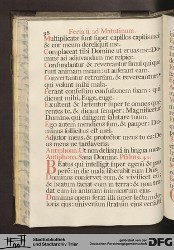 98 Feria ii ad Matutinum.
Multiplicate sunt super capillos capitis mei
& cor meum dereliquit me.
Complaceat tibi Domine ut eruas me: Do-
mine ad adiuvandum me respice.
Confundantur & revereantur simul qui quæ-
runt animam meam: ut auferant eam.
Convertantur retrorsum & revereantur:
qui volunt mihi mala.
Ferant confestim confusionem suam: qui
dicunt mihi, Euge, euge.
Exultent & lætentur super te omnes quæ-
rentes te, & dicant semper: Magnificetur
Dominus, qui diligunt salutare tuum.
Ego autem mendicus sum, & pauper: Do-
minus sollicitus est mei.
Adiutor meus, & protector meus tu es: De-
us meus ne tardaveris.
Antiphona. Ut non delinquam in lingua mea.
Antiphona. Sana Domine. Psalmus. 40.
Beatus qui intelligit super egenum & pau-
perem: in die mala liberabit eum Dominus.
Dominus conservet eum, & vivificet eum,
& beatum faciat eum in terra: & non tra-
dat eum in animam inimicorum eius.
Dominus opem ferat illi super lectum do-
loris eius: universum stratum eius versasti
Stadtbibliothek
und Stadtarchiv Trier
DFG